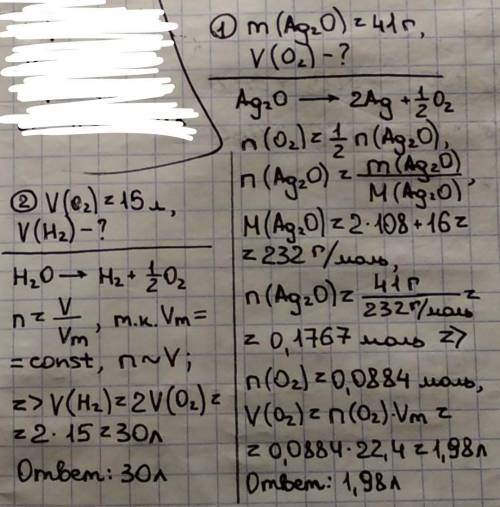 ① m(Ag₂O) = 41 г,
V(O₂) - ?
Ag₂O → 2Ag + ½O₂
n(O₂) = ½ n(Ag₂O),
n(Ag₂O) = m(Ag₂O)/M(Ag₂O),
M(Ag₂O) = 2·108 + 16 =
= 232 г/моль,
n(Ag₂O) = 41 г/232 г/моль =
= 0,1767 моль =>
n(O₂) = 0,0884 моль,
V(O₂) = n(O₂)·Vm =
= 0,0884·22,4 = 1,98 л
Ответ: 1,98 л
② V(O₂) = 15 л,
V(H₂) - ?
H₂O → H₂ + ½O₂
n = V/Vm, т.к. Vm =
= const, n ~ V;
=> V(H₂) = 2V(O₂) =
= 2·15 = 30 л
Ответ: 30 л